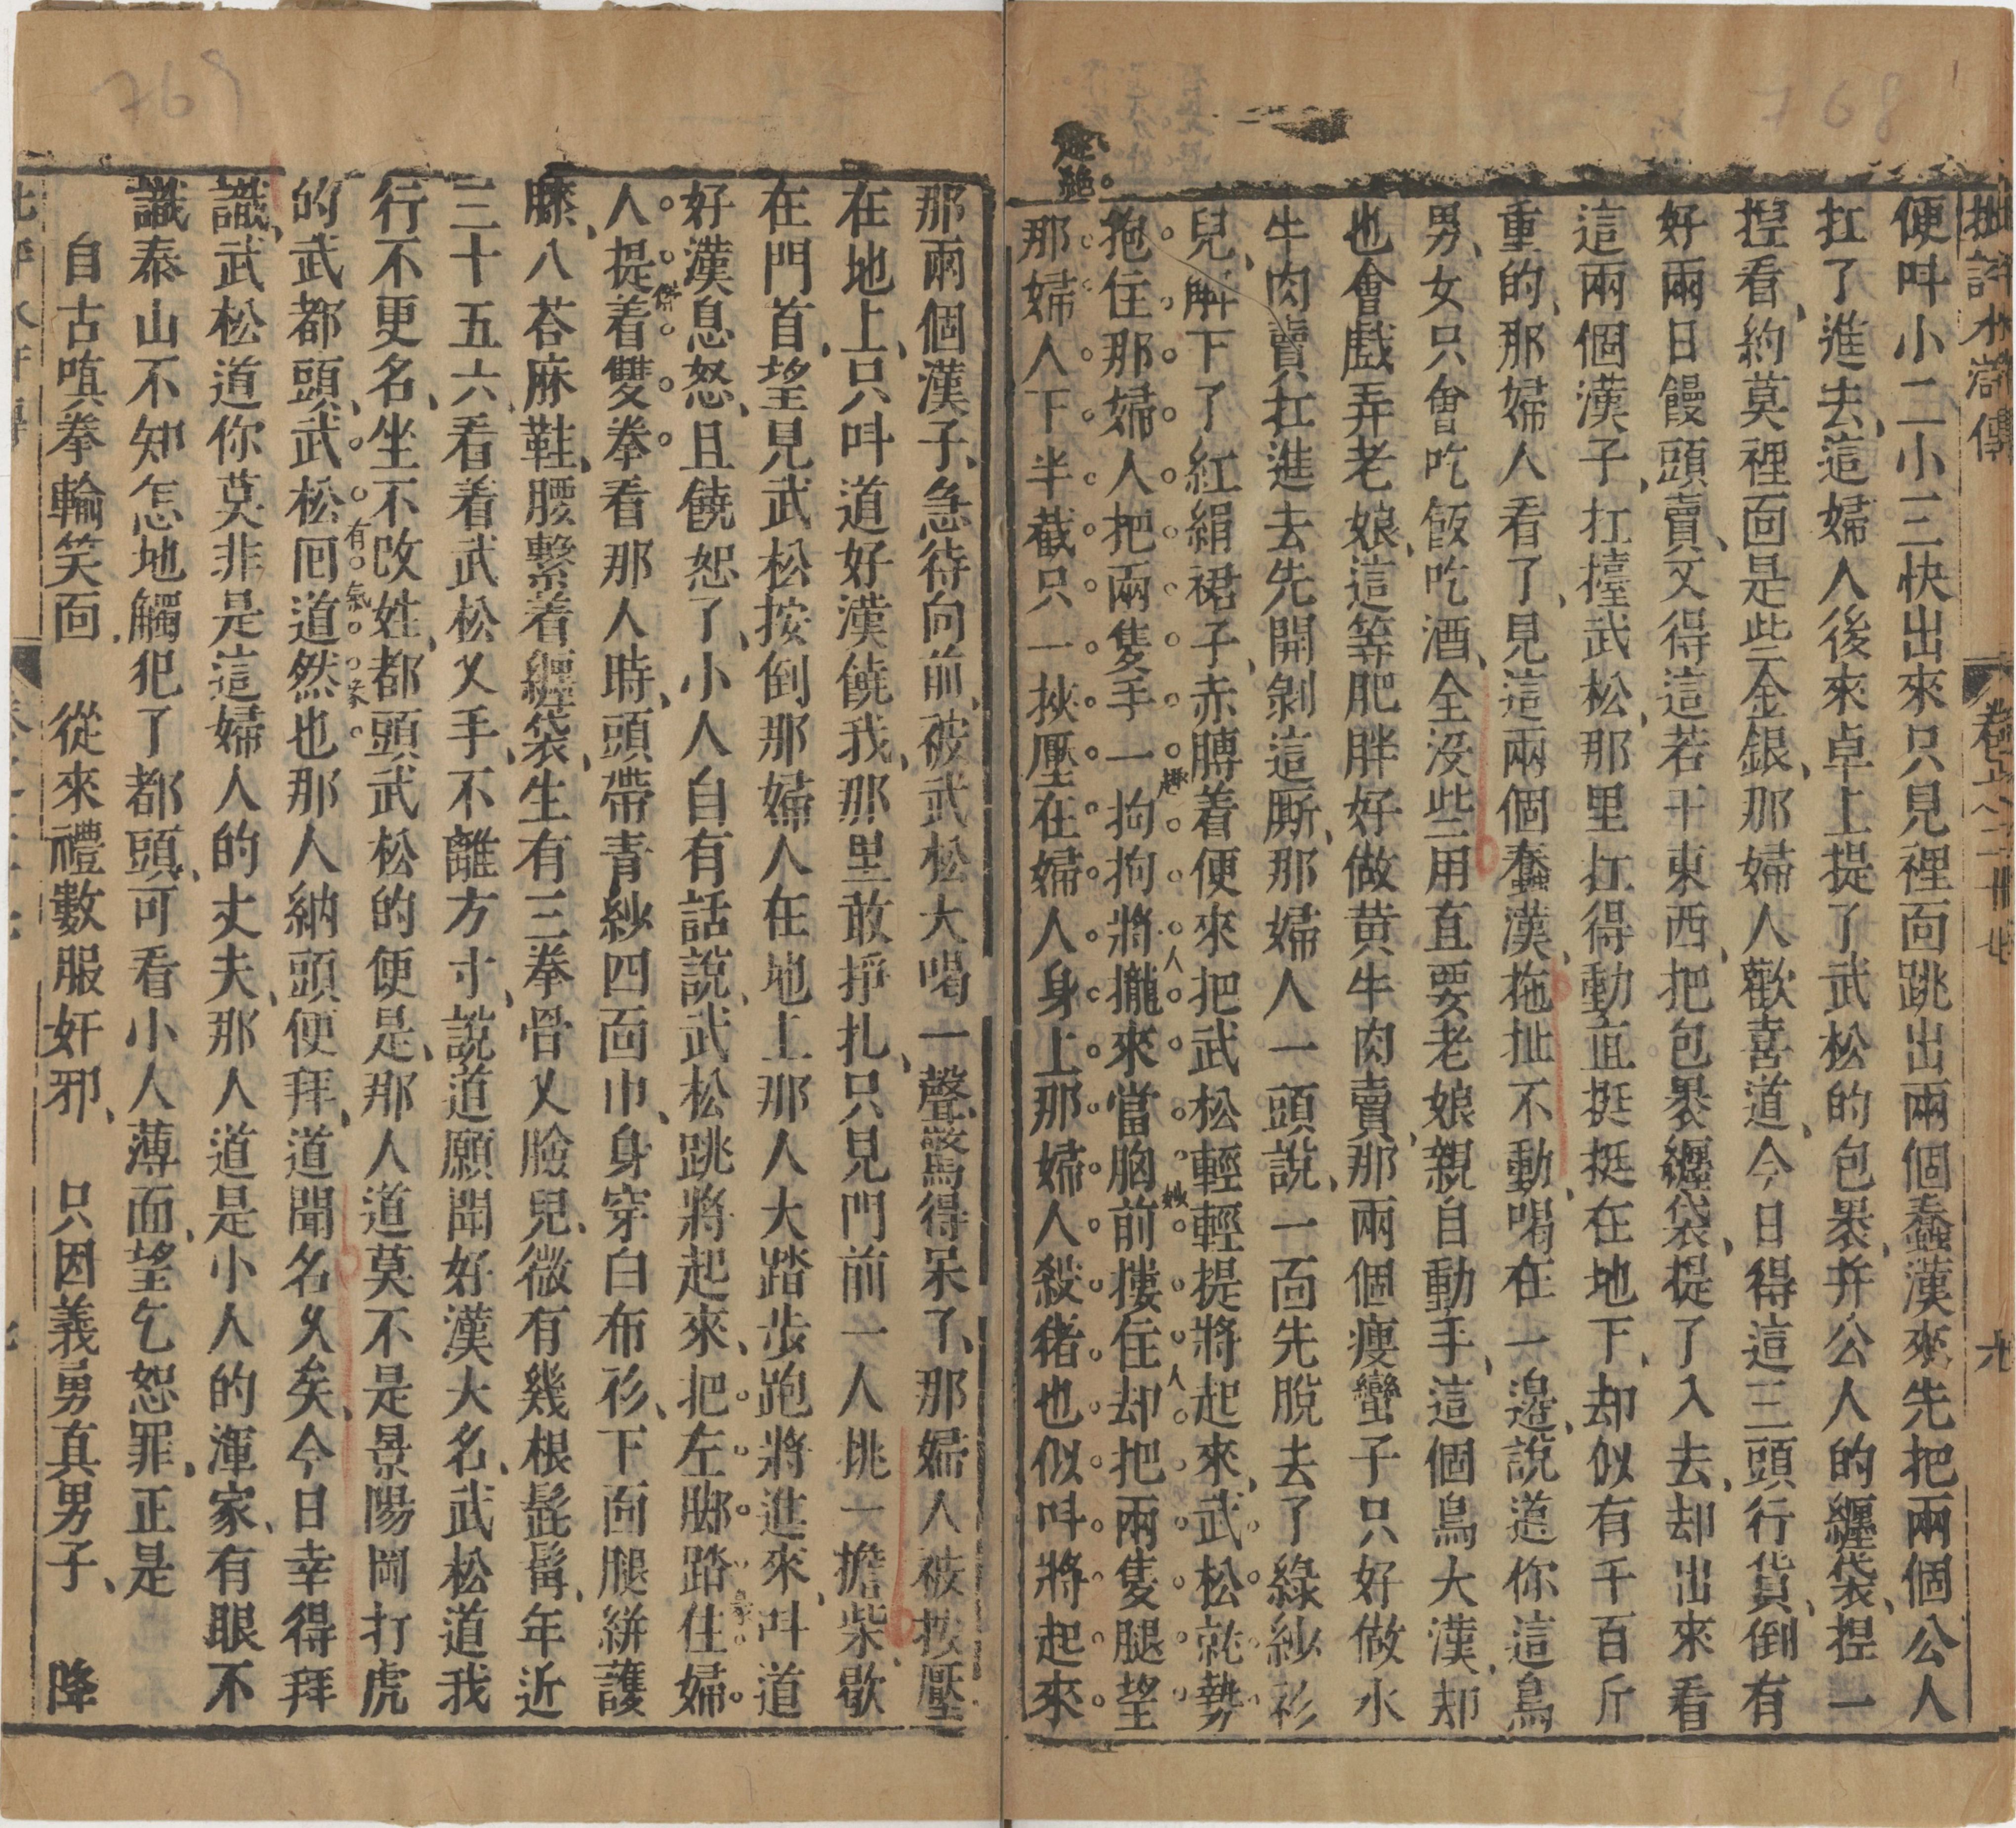 批評水滸傳
卷之二十七
九
便呌小二小三快出來只見裡面跳出兩個蠢漢來先把兩個公人
扛了進去這婦人後來卓上提了武松的包裹并公人的纏袋捏一
捏看約莫裡面是些金銀那婦人歡喜道今日得這三頭行貨倒有
好兩日饅頭賣又得這若干東西把包裹纏袋提了入去却出來看
這兩個漢子扛擡武松那里扛得動直挺挺在地下却似有千百斤
重的那婦人看了見這兩個蠢漢拖扯不動喝在一邊說道你這鳥
男女只會吃飯吃酒全没些用直要老娘親自動手這個鳥大漢却
也會戲弄老娘這等肥胖好做黄牛肉賣那兩個瘦蠻子只好做水
牛肉賣扛進去先開剝這厮那婦人一頭說一面先脫去了綠紗衫
兒解下了紅絹裙子赤膊着便來把武松輕輕提將起來武松就勢
抱住那婦人把兩隻手一拘拘將攏來當胸前摟住却把兩隻腿望
趣人妙人
那婦人下半截只一挾壓在婦人身上那婦人殺猪也似呌將起來
那兩個漢子急待向前被武松大喝一聲驚得呆了那婦人被按壓
在地上只呌道好漢饒我那里敢掙扎只見門前一人挑一擔柴歇
在門首望見武松按倒那婦人在地上那人大踏步跑將進來呌道
好漢息怒且饒恕了小人自有話說武松跳將起來把左脚踏住婦
人提着雙拳看那人時頭帶青紗四面巾身穿白布衫下面腿絣護
膝八荅麻鞋腰繫着纏袋生有三拳骨乂臉兒微有幾根髭髯年近
三十五六看着武松乂手不離方寸說道願聞好漢大名武松道我
行不更名坐不改姓都頭武松的便是那人道莫不是景陽岡打虎
有氣象
的武都頭武松囘道然也那人納頭便拜道聞名久矣今日幸得拜
識武松道你莫非是這婦人的丈夫那人道是小人的渾家有眼不
識泰山不知怎地觸犯了都頭可看小人薄面望乞恕罪正是
自古嗔拳輸笑面　從來禮數服奸邪　只因義勇真男子　降